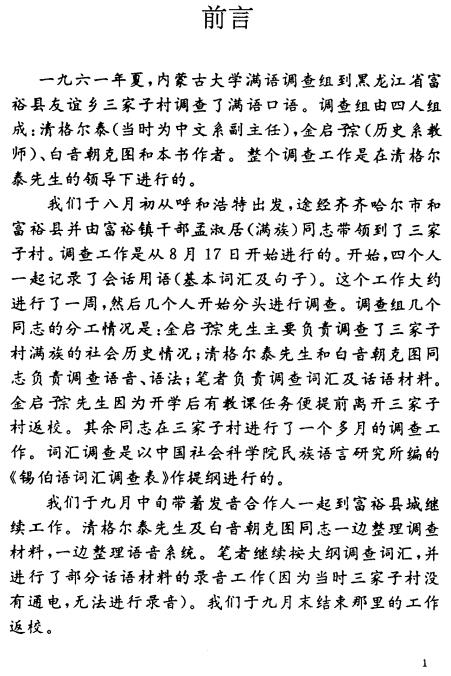 前言
一九六一年夏,内蒙古大学满语调查组到黑龙江省富
裕县友谊乡三家子村调查了满语口语。调查组由四人组
成:清格尔泰(当时为中文系副主任),金启孮(历史系教
师)、白音朝克图和本书作者。整个调查工作是在清格尔
泰先生的领导下进行的。
我们于八月初从呼和浩特出发,途经齐齐哈尔市和
富裕县并由富裕镇干部孟淑居(满族)同志带领到了三家
子村。调查工作是从8月17日开始进行的。开始,四个人
一起记录了会话用语(基本词汇及句子)。这个工作大约
进行了一周,然后几个人开始分头进行调查。调查组几个
同志的分工情况是:金启孮先生主要负责调查了三家子
村满族的社会历史情况;清格尔泰先生和白音朝克图同
志负责调查语音、语法;笔者负责调查词汇及话语材料。
金启孮先生因为开学后有教课任务便提前离开三家子
村返校。其余同志在三家子村进行了一个多月的调查工
作。词汇调查是以中国社会科学院民族语言研究所编的
《锡伯语词汇调查表》作提纲进行的。
我们于九月中旬带着发音合作人一起到富裕县城继
续工作。清格尔泰先生及白音朝克图同志一边整理调查
材料,一边整理语音系统。笔者继续按大纲调查词汇,并
进行了部分话语材料的录音工作(因为当时三家子村没
有通电,无法进行录音)。我们于九月末结束那里的工作
返校。
1